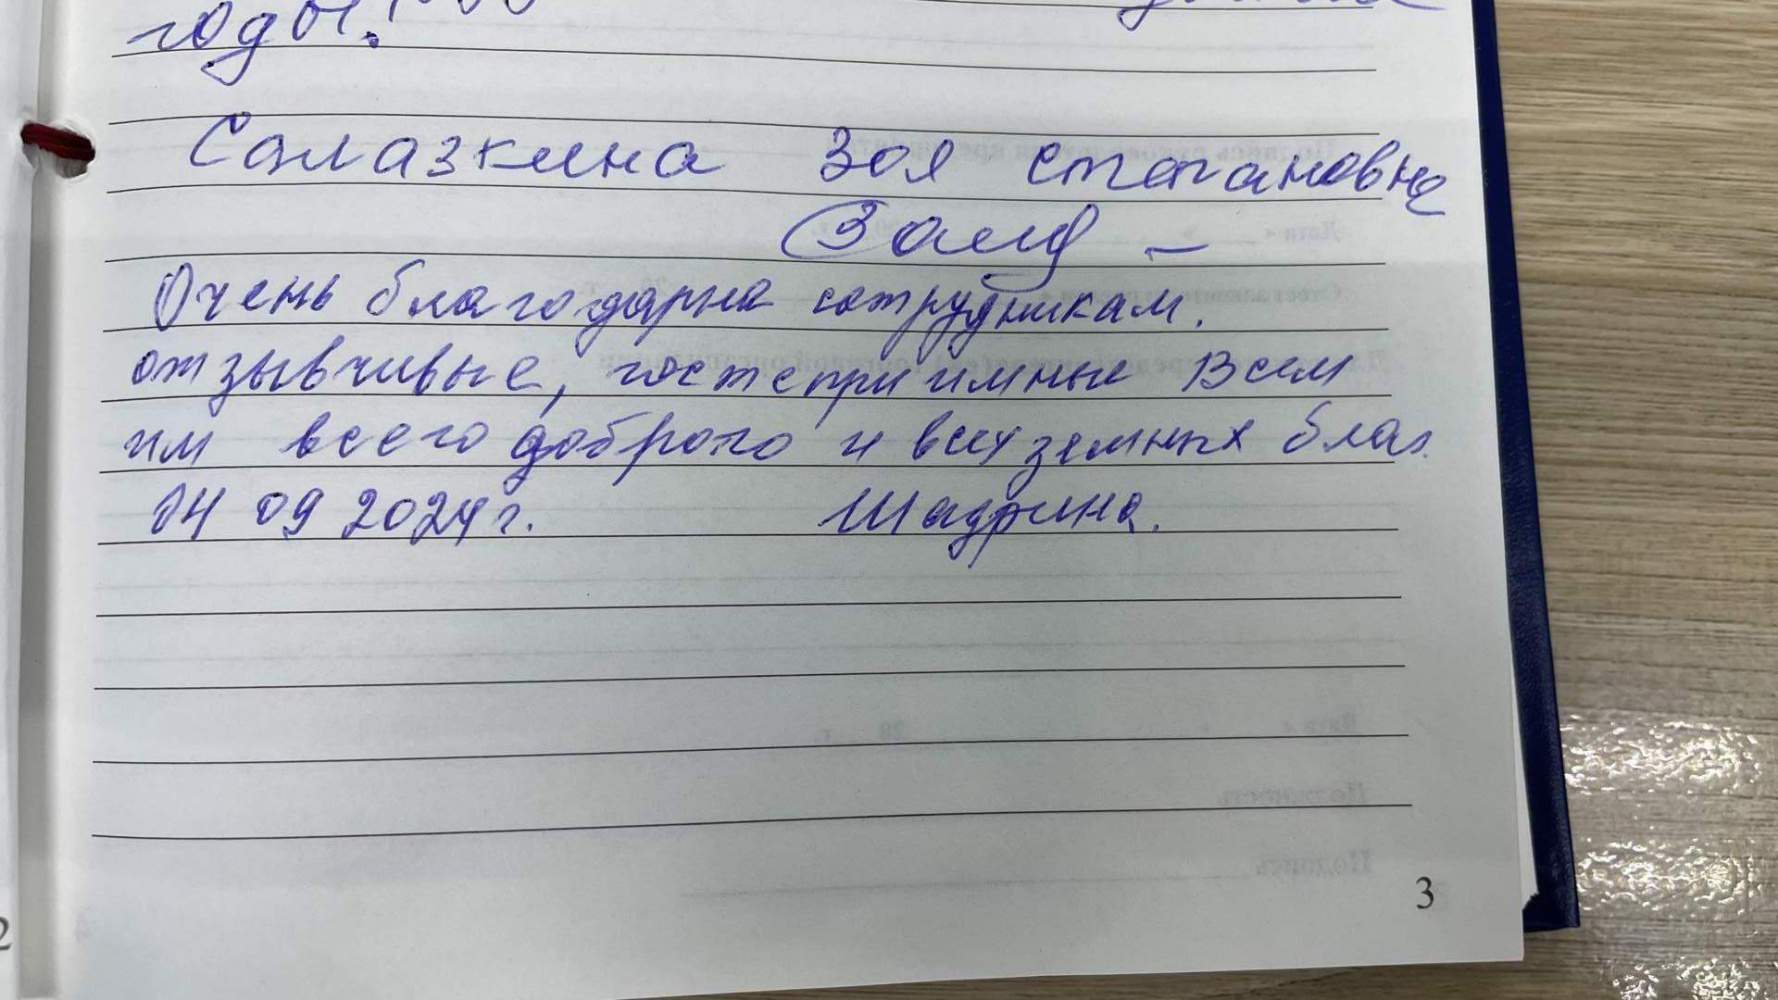 годы!
Салазкина Зоя степановна
Очень благодарна сотрудникам.
отзывчивые, гостеприимные Всем
им всего доброго и всех земных благ.
04 09 2024г. Шадрина.
3
2